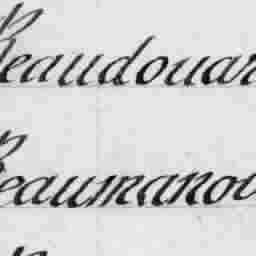 Beaudouar
Beaumanou